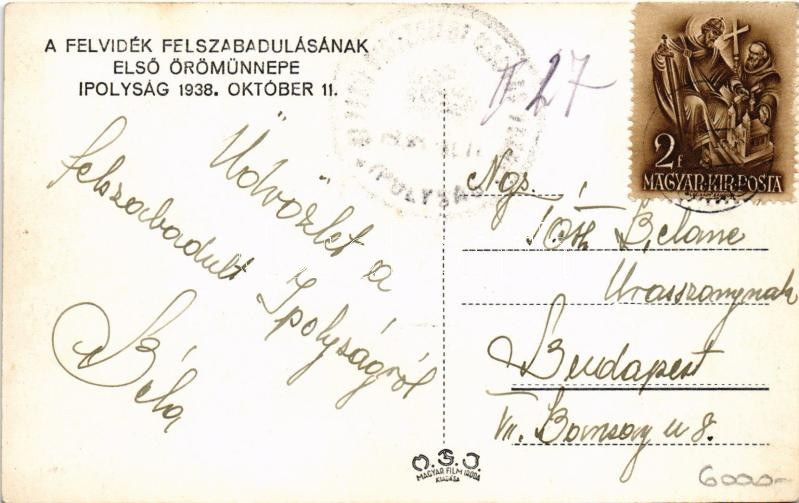 A FELVIDÉK FELSZABADULÁSÁNAK
ELSŐ ÖRÖMÜNNEPE
IPOLYSÁG 1938. OKTÓBER 11.
Üdvözlet a
felszabadult Ipolyságról
Béla
27
2f
MAGYAR·KIR·POSTA
IPOLYSÁG
Ngs.
Tóth Beláne
Urasszonynak
Budapest
VII. u 8.
M.F.I.
MAGYAR FILM IRODA
KIADÁSA
6000-